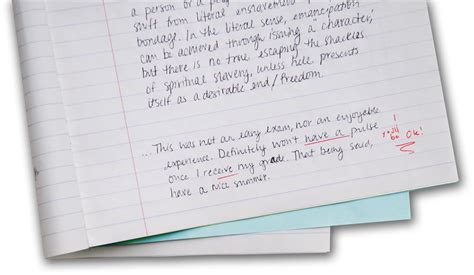 a person or a
shift from literal enslavement
bondage. In the literal sense, emancipation
can be achieved through issuing a "character,"
but there is no true escaping the shackles
of spiritual slavery, unless hell presents
itself as a desirable end/freedom.
...This was not an easy exam, nor an enjoyable
experience. Definitely won't have a pulse
once I receive my grade. That being said,
have a nice summer.
I
you'll
be OK!